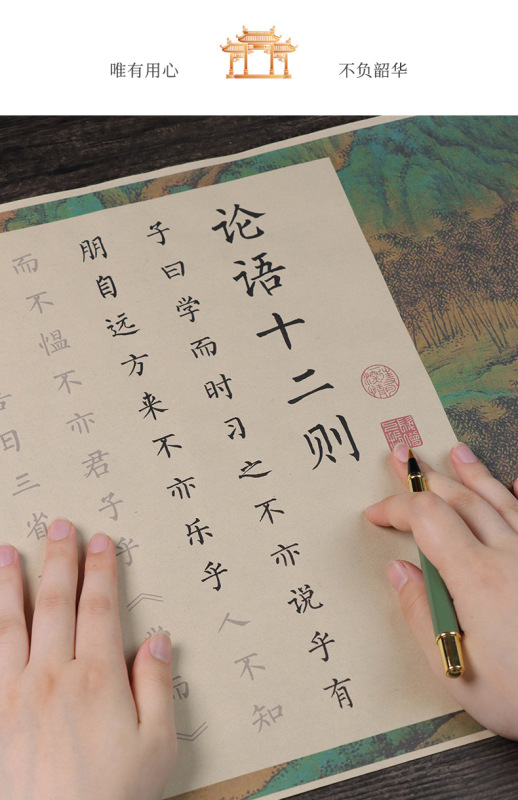 唯有用心
不负韶华
论语十二则
子曰学而时习之不亦说乎有
朋自远方来不亦乐乎 人不知
而不愠不亦君子乎《学而》
曰三省